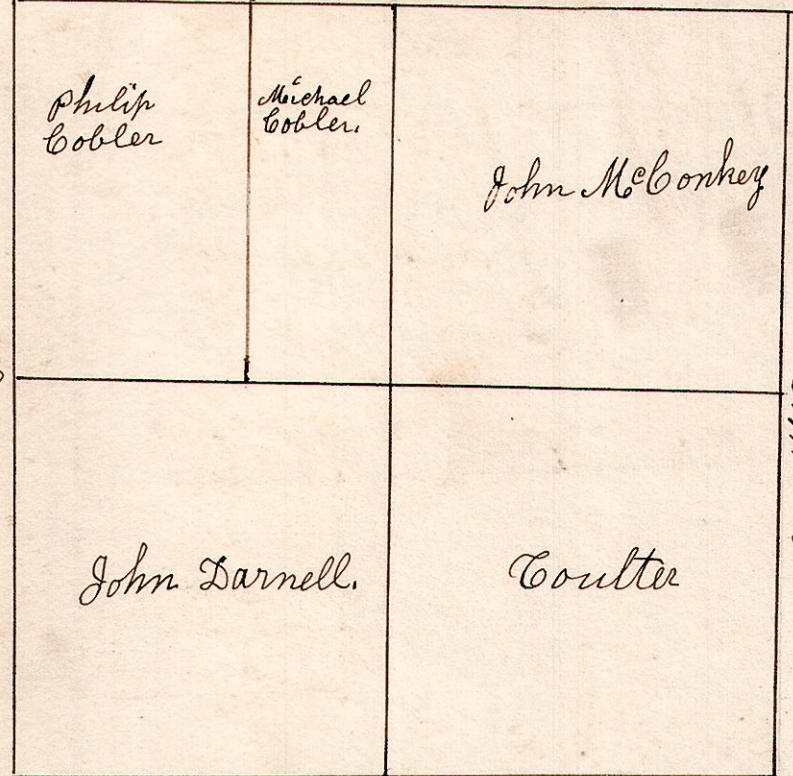 Philip
Cobler
Michael
Cobler.
John McConkey
John Darnell.
Coulter